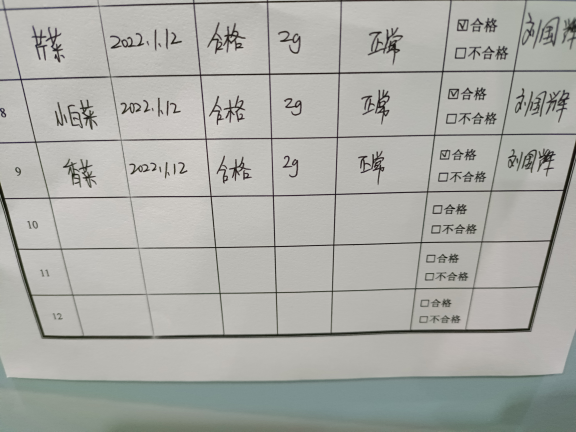 芹菜 2022.1.12 合格 2g 正常 ☑合格 刘国辉
□不合格
8 小白菜 2022.1.12 合格 2g 正常 ☑合格 刘国辉
□不合格
9 香菜 2022.1.12 合格 2g 正常 ☑合格 刘国辉
□不合格
10 □合格
□不合格
11 □合格
□不合格
12 □合格
□不合格